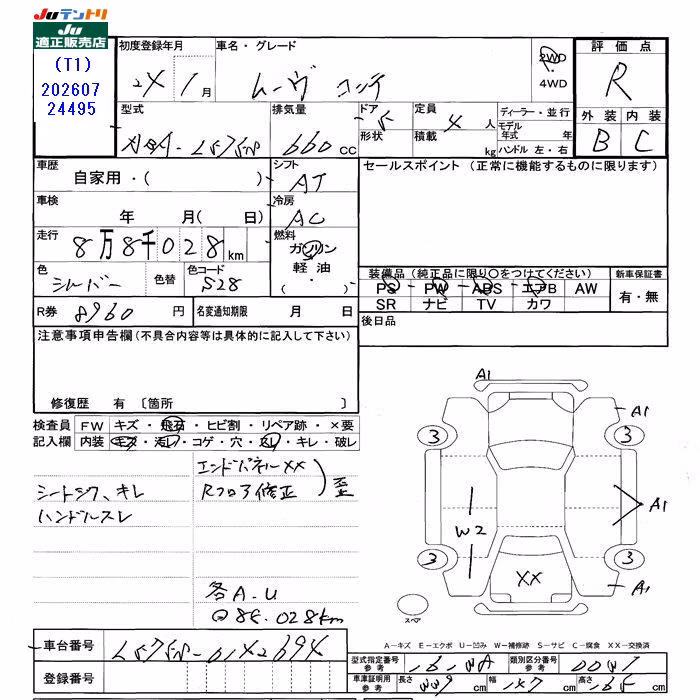 Juテントリ
Ju
適正販売店
(T1)
202607
24495
初度登録年月 24 1月
車名・グレード ムーヴ コンテ
2WD
4WD
評価点 R
外装 B 内装 C
型式
排気量 660cc
ドア 5
形状
定員 4人
積載 kg
ディーラー・並行
モデル年式 年
ハンドル 左・右
車歴 自家用・( )
シフト AT
車検 年 月( 日)
冷房 AC
走行 8万8千028km
燃料 ガソリン
軽油・
色 シルバー 色替
色コード S28
R券 8960円
名変通知期限 月 日
セールスポイント(正常に機能するものに限ります)
装備品(純正品に限り○をつけてください)
PS PW ABS エアB AW
SR ナビ TV カワ
新車保証書
有・無
後日品
注意事項申告欄(不具合内容等は具体的に記入して下さい)
修復歴 有〔箇所 〕
検査員記入欄
FW キズ・飛石・ヒビ割・リペア跡・×要
内装 キズ・汚レ・コゲ・穴・スレ・キレ・破レ
シートシワ、キレ
ハンドルスレ
エンドパネルXX
Rフロア修正
歪
各A.U
@88.028km
A1
A1
3
3
A1
W2
3
3
XX
A1
スペア
A-キズ E-エクボ U-凹み W-補修跡 S-サビ C-腐食 XX-交換済
車台番号
登録番号
型式指定番号
参考
類別区分番号
参考
車庫証明用
参考
長さ cm
幅 147cm
高さ cm